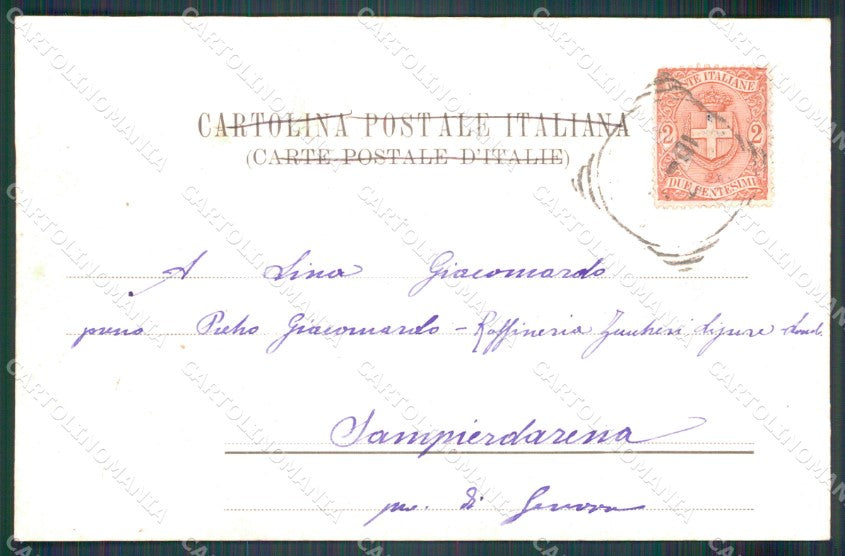 CARTOLINA POSTALE ITALIANA
(CARTE POSTALE D'ITALIE)
POSTE ITALIANE
2 2
DUE CENTESIMI
A Lina Giacomardo
presso Pietro Giacomardo - Raffineria Zuccheri Ligure Lomb.
Sampierdarena
pr. di Genova
CARTOLINOMANIA